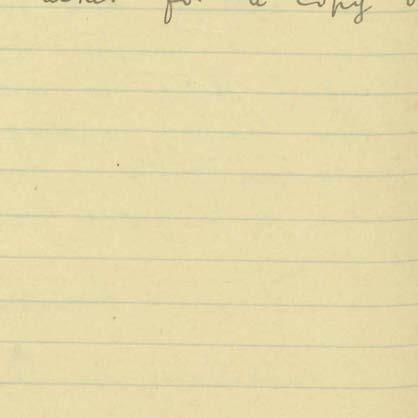 for a copy